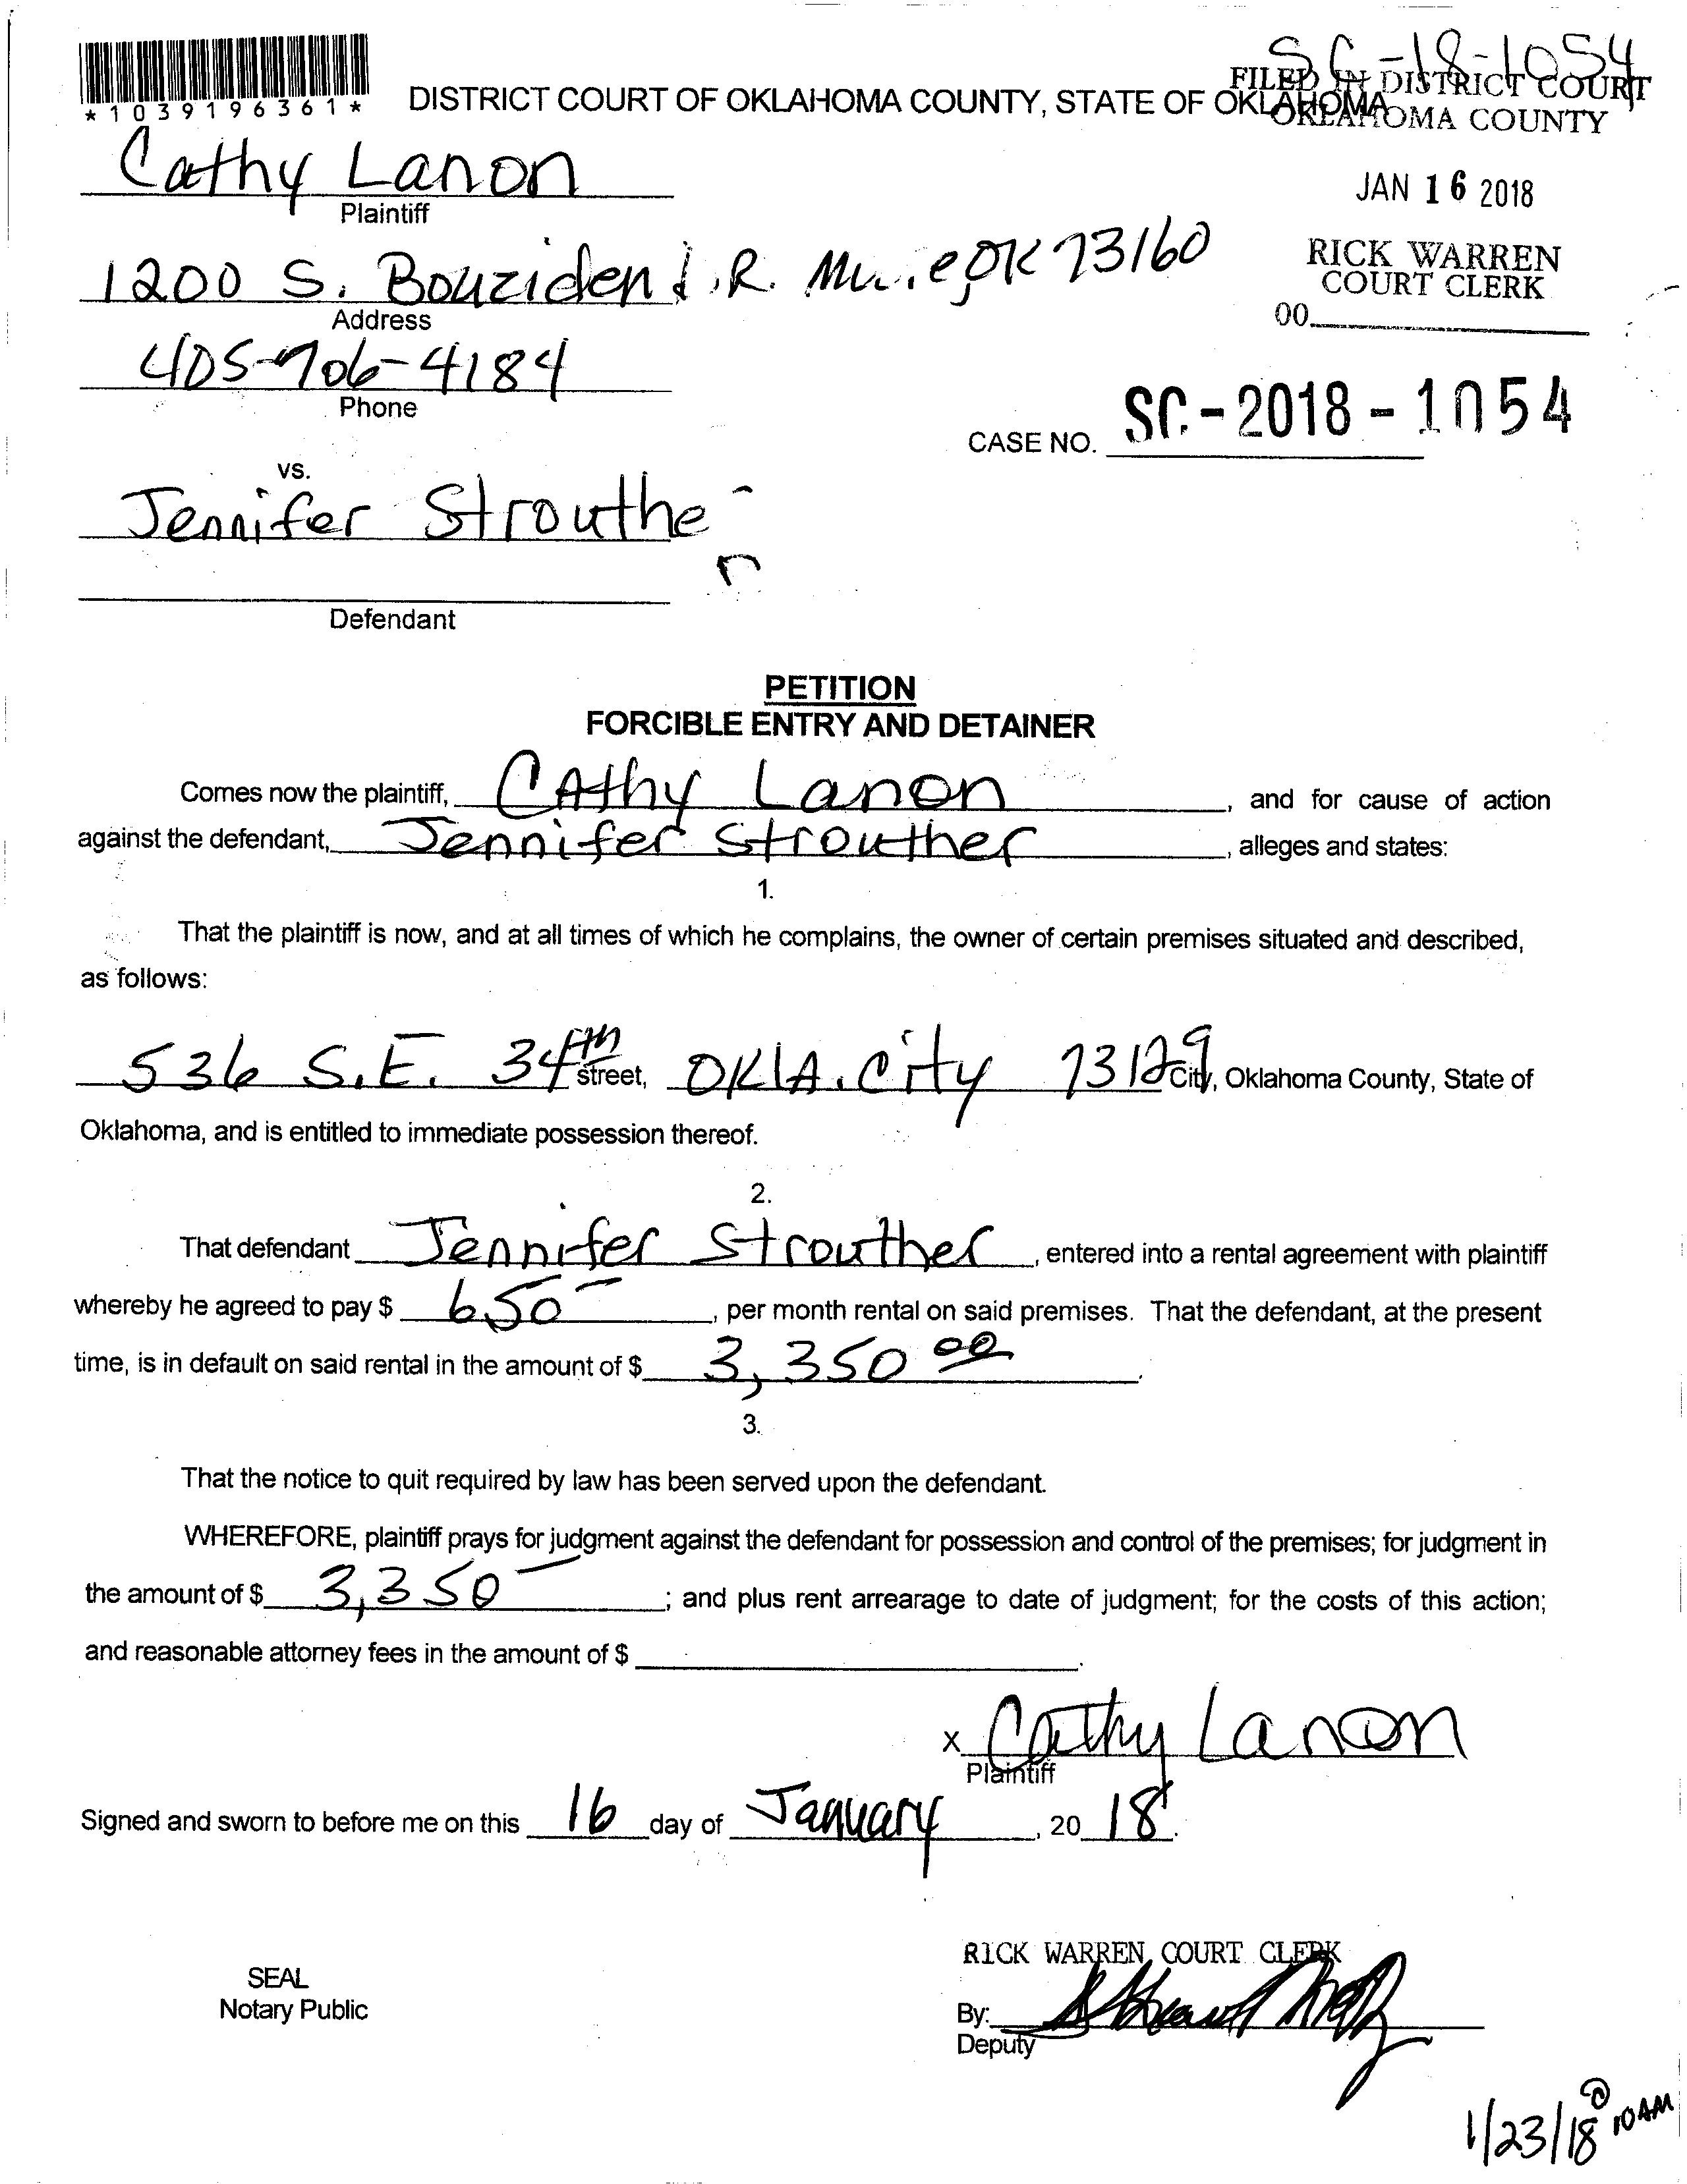 SC-18-1054
*1039196361*
DISTRICT COURT OF OKLAHOMA COUNTY, STATE OF OKLAHOMA
FILED IN DISTRICT COURT
OKLAHOMA COUNTY
Cathy Lanon
Plaintiff
JAN 16 2018
RICK WARREN
COURT CLERK
1200 S. Bouziden OK 73160
Address
00
405-706-4184
Phone
CASE NO. SC-2018-1054
vs.
Jennifer Strouther
Defendant
PETITION
FORCIBLE ENTRY AND DETAINER
Comes now the plaintiff, CAthy Lanon, and for cause of action
against the defendant, Jennifer Strouther, alleges and states:
1.
That the plaintiff is now, and at all times of which he complains, the owner of certain premises situated and described,
as follows:
536 S.E. 34th street, OKlA. City 73129 City, Oklahoma County, State of
Oklahoma, and is entitled to immediate possession thereof.
2.
That defendant Jennifer Strouther, entered into a rental agreement with plaintiff
whereby he agreed to pay $ 650-, per month rental on said premises. That the defendant, at the present
time, is in default on said rental in the amount of $ 3,350 00.
3.
That the notice to quit required by law has been served upon the defendant.
WHEREFORE, plaintiff prays for judgment against the defendant for possession and control of the premises; for judgment in
the amount of $ 3,350-; and plus rent arrearage to date of judgment; for the costs of this action;
and reasonable attorney fees in the amount of $ .
x Cathy Lanon
Plaintiff
Signed and sworn to before me on this 16 day of January, 20 18.
RICK WARREN, COURT CLERK
SEAL
Notary Public
By:
Deputy
1/23/18 @ 10AM